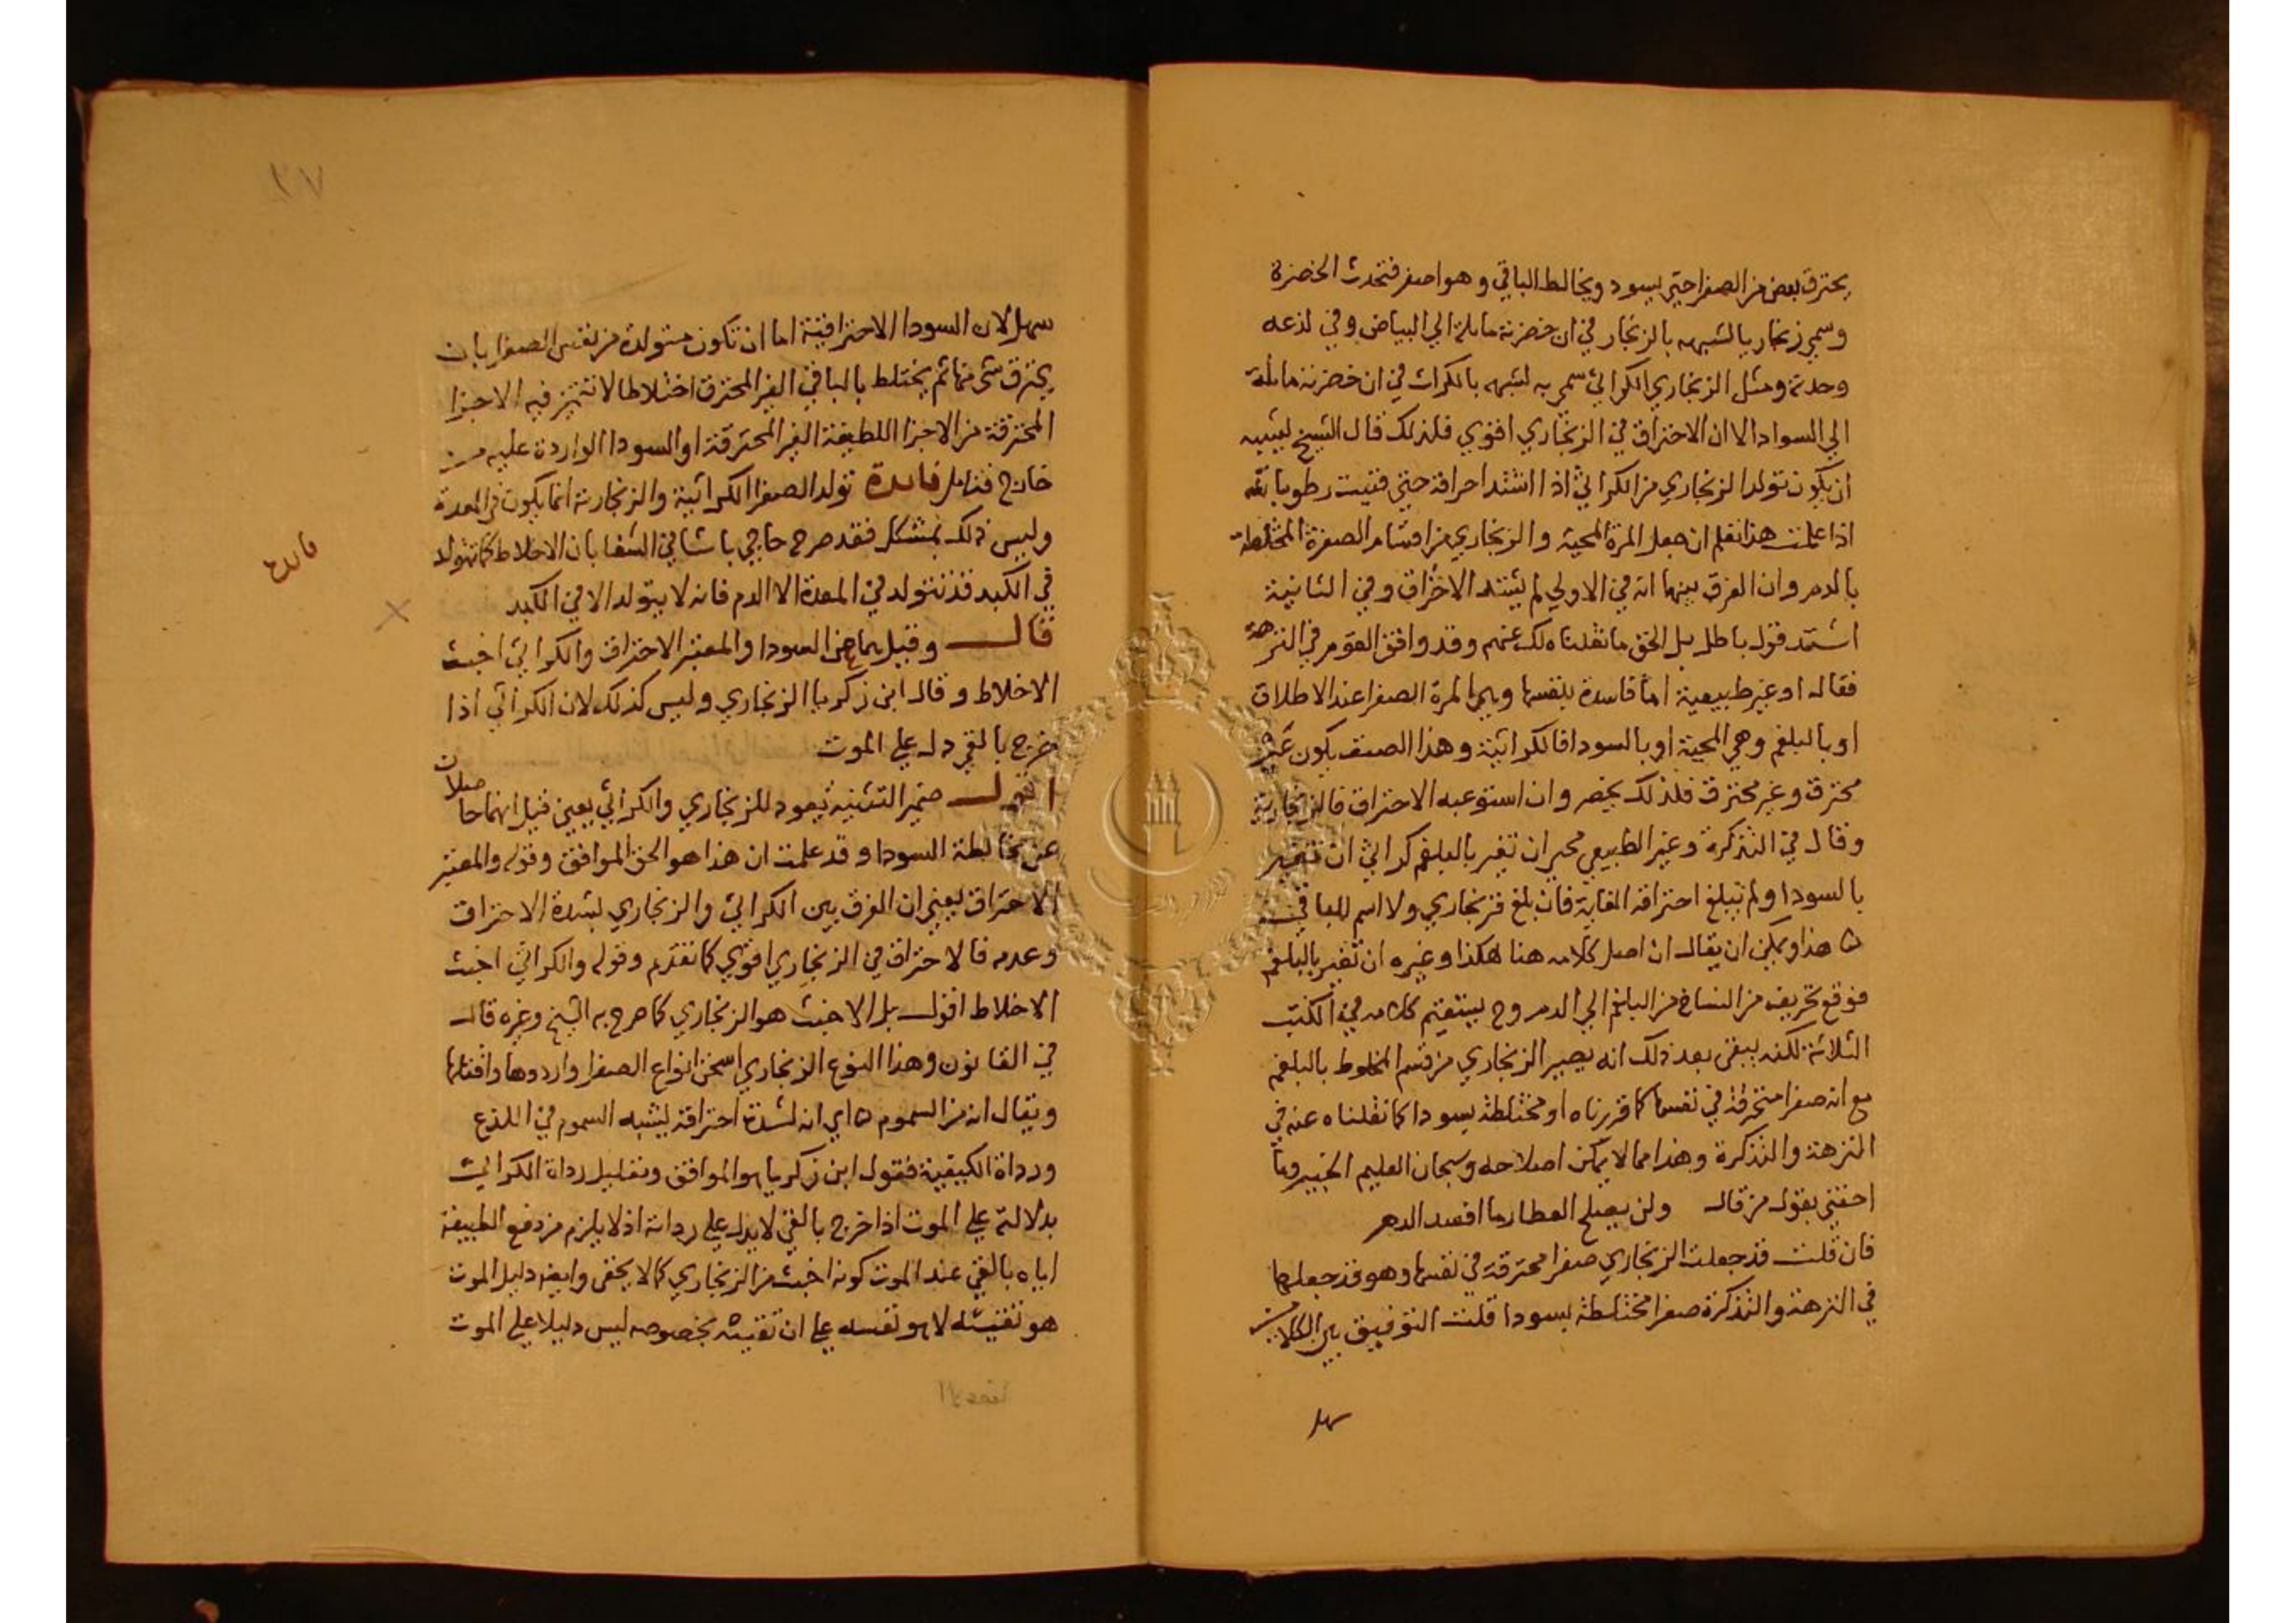 يحترق بعض من الصفرا حتي يسود ويخالط الباقي وهو اصفر فتحدث الخضرة
وسمي زنجاريا لشبهه بالزنجار في ان خضرته مايلة الي البياض وفي لذعه
وحدته ومثل الزنجاري الكراثي سمي به لشبهه بالكراث في ان خضرته مايلة
الي السواد الا ان الاحتراق في الزنجاري اقوي فلذلك قال الشيخ يشبه
ان يكون تولد الزنجاري من الكراثي اذا اشتد احراقه حتي فنيت رطوباته
اذا علمت هذا تعلم ان جعل المرة المحية والزنجاري من اقسام الصفرة المختلطة
بالدم وان الفرق بينهما انه في الاولي لم يشتد الاحتراق وفي الثانية
اشتد قول باطل بل الحق ما نقلناه لك عنهم وقد وافق القوم في النزهة
فقال او غير طبيعية اما فاسدة بنفسها وهي المرة الصفرا عند الاطلاق
او بالبلغم وهي المحية او بالسودا فالكراثية وهذا الصنف يكون عن
محترق وغير محترق فلذلك يخضر وان استوعبه الاحتراق فالزنجارية
وقال في التذكرة وغير الطبيعي محي ان تغير بالبلغم كراثي ان تغير
بالسودا ولم تبلغ احتراقه الغاية فان بلغ فزنجاري ولا اسم للباقي
ه هذا ويمكن ان يقال ان اصل كلامه هنا هكذا وغيره ان تغير بالبلغم
فوقع تحريف من النساخ من البلغم الي الدم وح يستقيم كلامه في الكتب
الثلاثة لكنه يبقي بعد ذلك انه يصير الزنجاري من قسم المخلوط بالبلغم
مع انه صفرا محترقة في نفسها كما قررناه او مختلطة بسودا كما نقلناه عنه في
النزهة والتذكرة وهذا مما لا يمكن اصلاحه وسبحان العليم الخبير وما
احقني بقول من قال ولن يصلح العطار ما افسد الدهر
فان قلت قد جعلت الزنجاري صفرا محترقة في نفسها وهو قد جعلها
في النزهة والتذكرة صفرا مختلطة بسودا قلت التوفيق بين الكلامين
سهل
٣٧
سهل لان السودا الاحتراقية اما ان تكون متولدة من نفس الصفرا بان
يحترق شي منها ثم يختلط بالباقي الغير المحترق اختلاطا لا تتميز فيه الاجزا
المحترقة من الاجزا اللطيفة الغير المحترقة او السودا الواردة عليه من
خارج فتامل فايدة تولد الصفرا الكراثية والزنجارية انما يكون في المعدة
وليس ذلك بمشكل فقد صرح حاجي باشا في الشفا بان الاخلاط كما تتولد
في الكبد قد تتولد في المعدة الا الدم فانه لا يتولد الا في الكبد
فايدة
قال وقيل هما عن السودا والمعتبر الاحتراق والكراثي اخبث
الاخلاط وقال ابن زكريا الزنجاري وليس كذلك لان الكراثي اذا
خرج بالقي دل علي الموت
اقول ضمير التثنية يعود للزنجاري والكراثي يعني قيل انهما حاصلان
عن مخالطة السودا وقد علمت ان هذا هو الحق الموافق وقوله والمعتبر
الاحتراق يعني ان الفرق بين الكراثي والزنجاري لشدة الاحتراق
وعدمه فالاحتراق في الزنجاري اقوي كما تقدم وقوله والكراثي اخبث
الاخلاط اقول بل الاخبث هو الزنجاري كما صرح به الشيخ وغيره قال
في القانون وهذا النوع الزنجاري اسخن انواع الصفرا واردوها واقتلها
ويقال انه من السموم ه اي انه لشدة احتراقه يشبه السموم في اللذع
ورداة الكيفية فقول ابن زكريا هو الموافق وتعليل رداة الكراثي
بدلالته علي الموت اذا خرج بالقي لا يدل علي رداته اذ لا يلزم من دفع الطبيعة
اياه بالقي عند الموت كونه اخبث من الزنجاري كما لا يخفي وايضا دليل الموت
هو تقيئه لا هو نفسه علي ان تقيئه بخصوصه ليس دليلا علي الموت